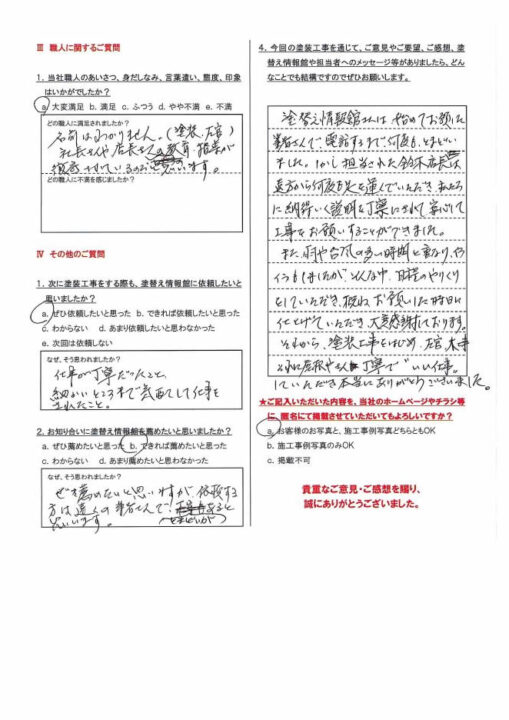 Ⅲ 職人に関するご質問
1. 当社職人のあいさつ、身だしなみ、言葉遣い、態度、印象
はいかがでしたか？
a 大変満足 b. 満足 c. ふつう d. やや不満 e. 不満
どの職人に満足されましたか？
名前はわかりません。(塗装、左官)
社長さんや店長さんの教育、指導が
徹底されているのだと思います。
どの職人に不満を感じましたか？
Ⅳ その他のご質問
1. 次に塗装工事をする際も、塗替え情報館に依頼したいと
思いましたか？
a. ぜひ依頼したいと思った b. できれば依頼したいと思った
c. わからない d. あまり依頼したいと思わなかった
e. 次回は依頼しない
なぜ、そう思われましたか？
仕事が丁寧だったこと、
細かいところまで気配りして仕事を
されたこと。
2. お知り合いに塗替え情報館を薦めたいと思いましたか？
a. ぜひ薦めたいと思った b. できれば薦めたいと思った
c. わからない d. あまり薦めたいと思わなかった
なぜ、そう思われましたか？
ぜひ薦めたいと思いますが、依頼する
方は遠くの業者さんで、
とまどいが あると
思います。
4. 今回の塗装工事を通じて、ご意見やご要望、ご感想、塗
替え情報館や担当者へのメッセージ等がありましたら、どん
なことでも結構ですのでぜひお願いします。
塗替え情報館さんは初めてお願いした
業者さんで、電話するまで何度も、とまどい
ました。しかし担当された鈴木店長は
遠方から何度も足を運んでいただき、
に納得いく説明を丁寧にされて安心して
工事をお願いすることができました。
また、雨や台風の多い時期と重なり、や
きもきしましたが、そんな中、日程のやりくり
をしていただき、概ね、お願いした時日に
仕上げていただき、大変感謝しております。
それから、塗装工事をはじめ、左官、木事
それに 丁寧でいい仕事を
していただき本当にありがとうございました。
★ご記入いただいた内容を、当社のホームページやチラシ等
に、匿名にて掲載させていただいてもよろしいですか？
a. お客様のお写真と、施工事例写真どちらともOK
b. 施工事例写真のみOK
c. 掲載不可
貴重なご意見・ご感想を賜り、
誠にありがとうございました。